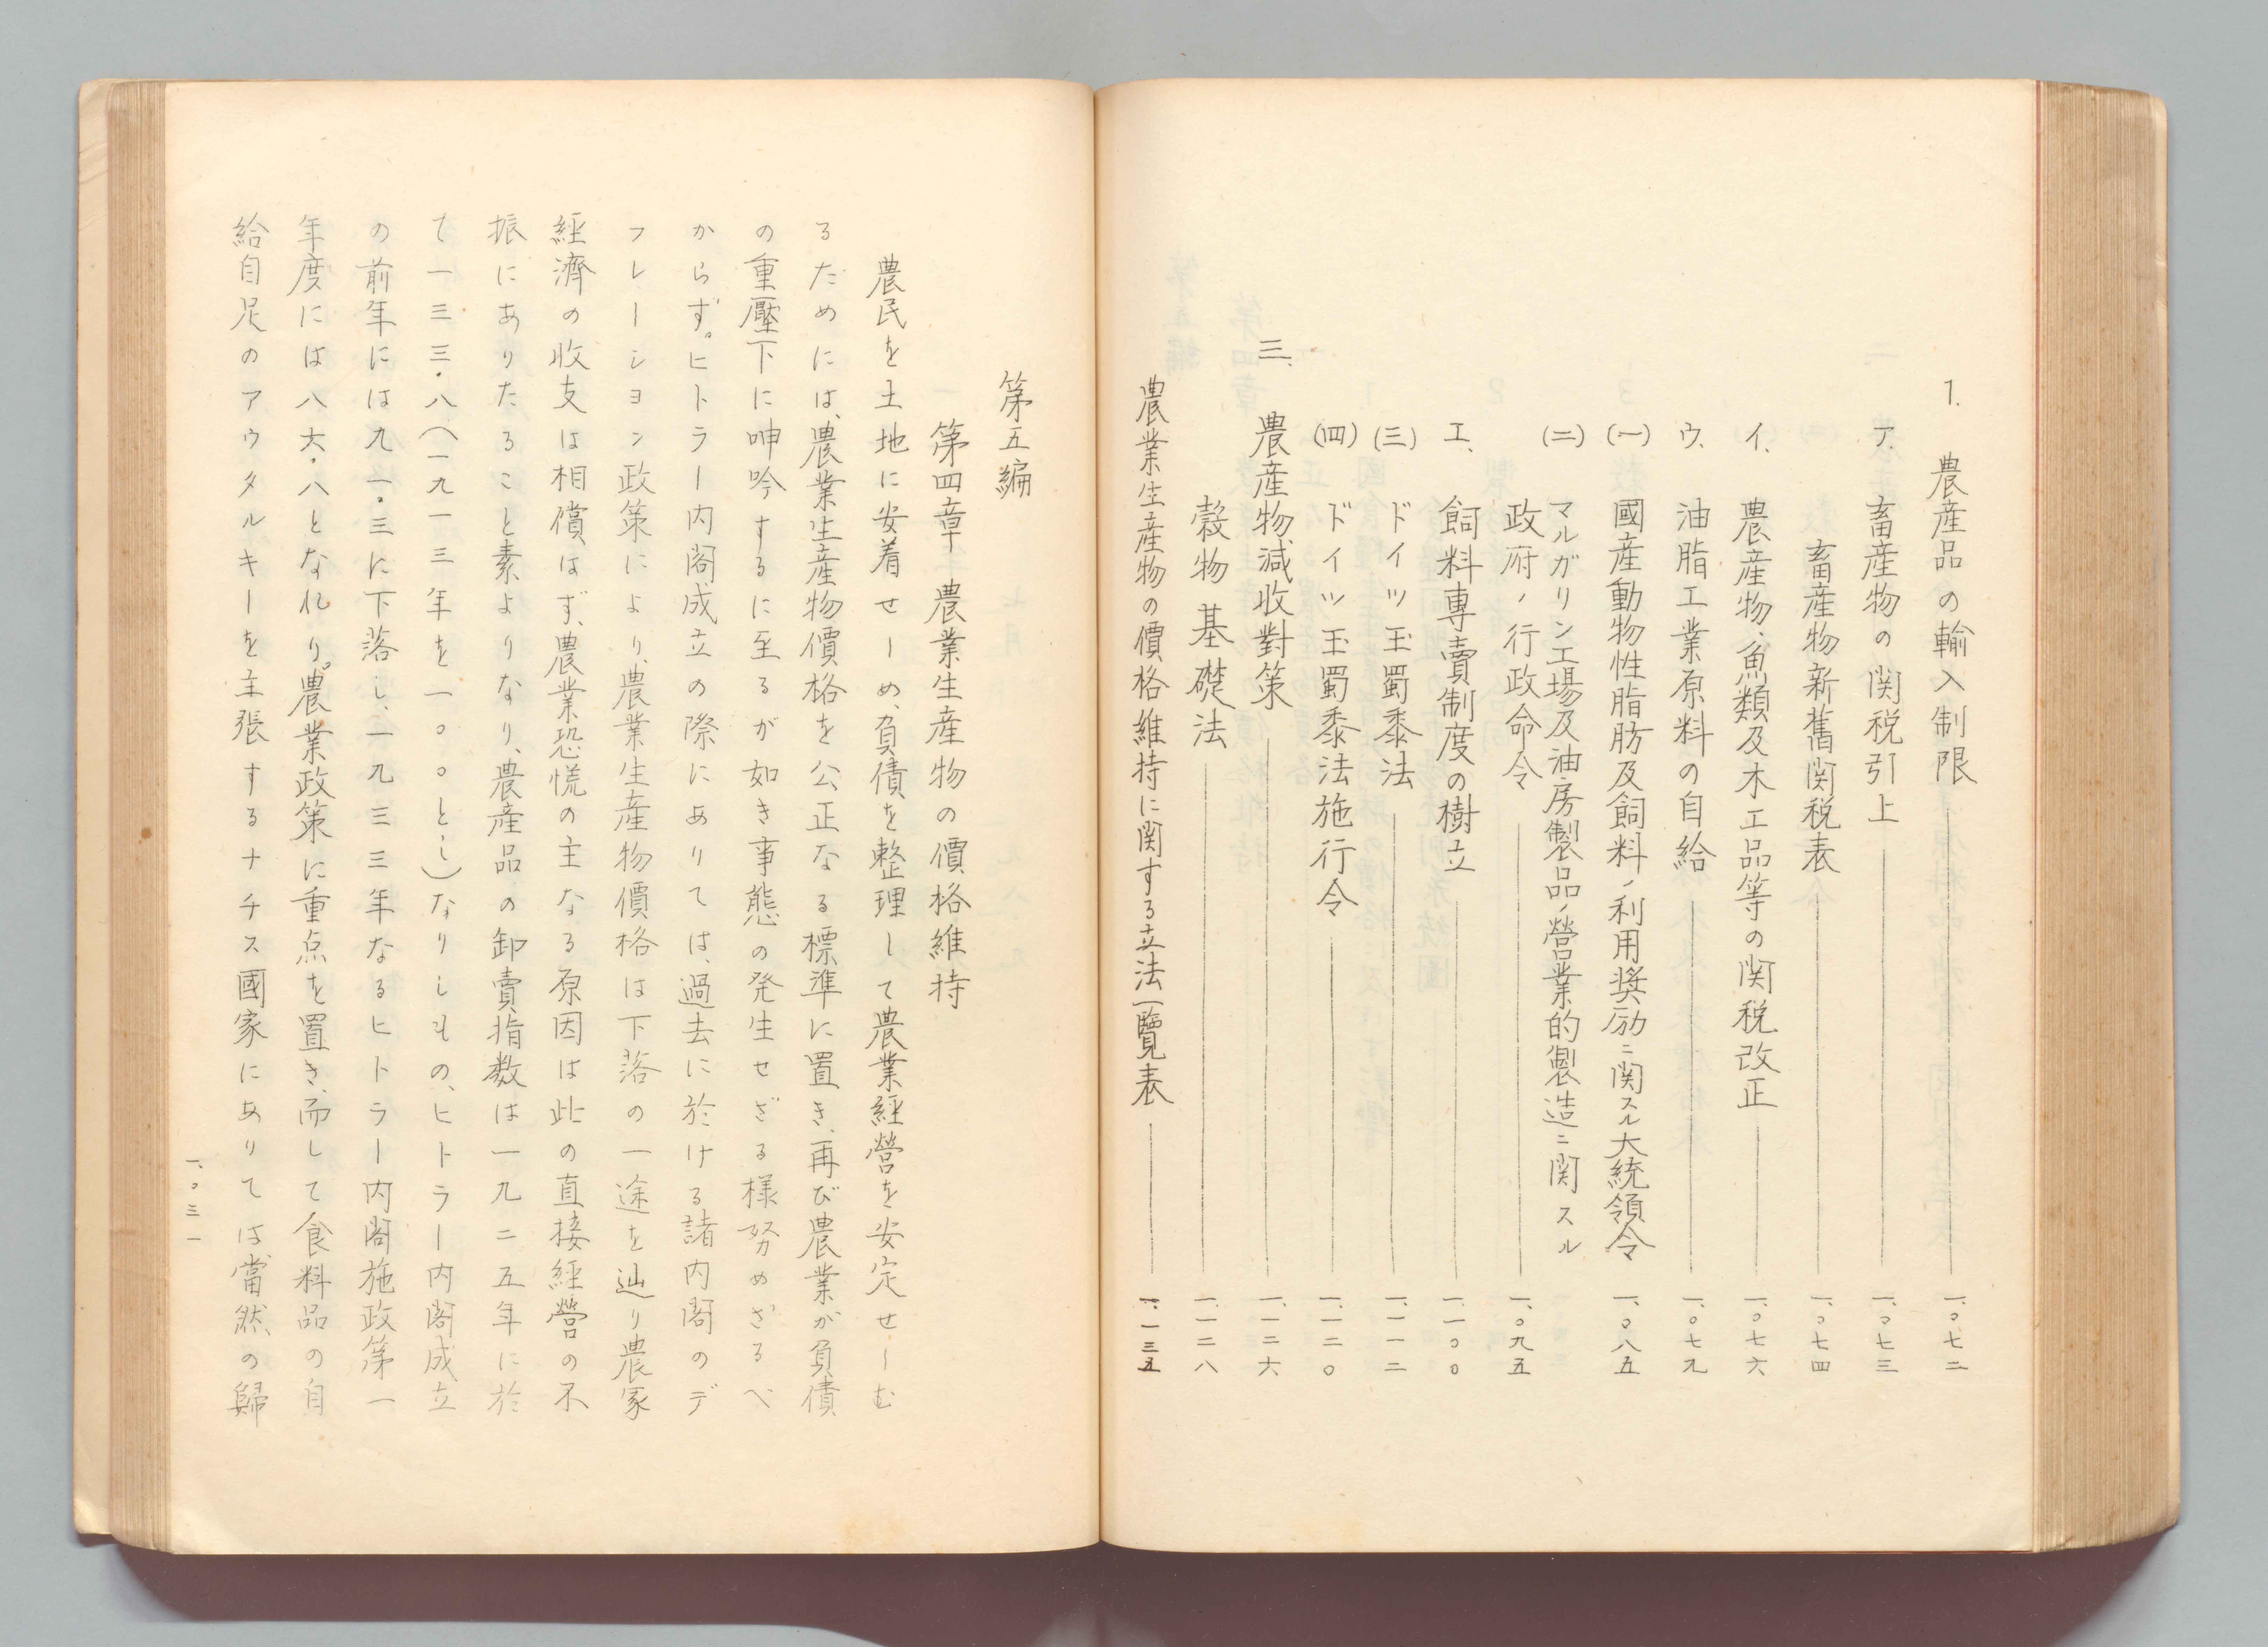 1. 農産品の輸入制限 一、〇七二
ア. 畜産物の関税引上 一、〇七三
畜産物新舊関税表 一、〇七四
イ、農産物、魚類及木工品等の関税改正 一、〇七六
ウ、油脂工業原料の自給 一、〇七九
(一) 國産動物性脂肪及飼料ノ利用奨励ニ関スル大統領令 一、〇八五
(二) マルガリン工場及油房製品ノ營業的製造ニ関スル
政府ノ行政命令 一、〇九五
エ、飼料專賣制度の樹立 一、一〇〇
(三) ドイツ玉蜀黍法 一、一一二
(四) ドイツ玉蜀黍法施行令 一、一二〇
三、農産物減收對策 一、一二六
穀物基礎法 一、一二八
農業生産物の價格維持に関する立法一覽表 一、一三五
第五編
第四章 農業生産物の價格維持
農民を土地に安着せしめ、負債を整理して農業経營を安定せしむ
るためには、農業生産物價格を公正なる標準に置き、再び農業が負債
の重壓下に呻吟するに至るが如き事態の発生せざる様努めざるべ
からず。ヒトラー内閣成立の際にありては、過去に於ける諸内閣のデ
フレーション政策により、農業生産物價格は下落の一途を辿り農家
経濟の收支は相償はず、農業恐慌の主なる原因は此の直接経營の不
振にありたること素よりなり、農産品の卸賣指数は一九二五年に於
て一三三・八、(一九一三年を一〇〇とし)なりしもの、ヒトラー内閣成立
の前年には九一・三に下落し、一九三三年なるヒトラー内閣施政第一
年度には八六・八となれり。農業政策に重点を置き、而して食料品の自
給自足のアウタルキーを主張するナチス國家にありては當然の歸
一、〇三一